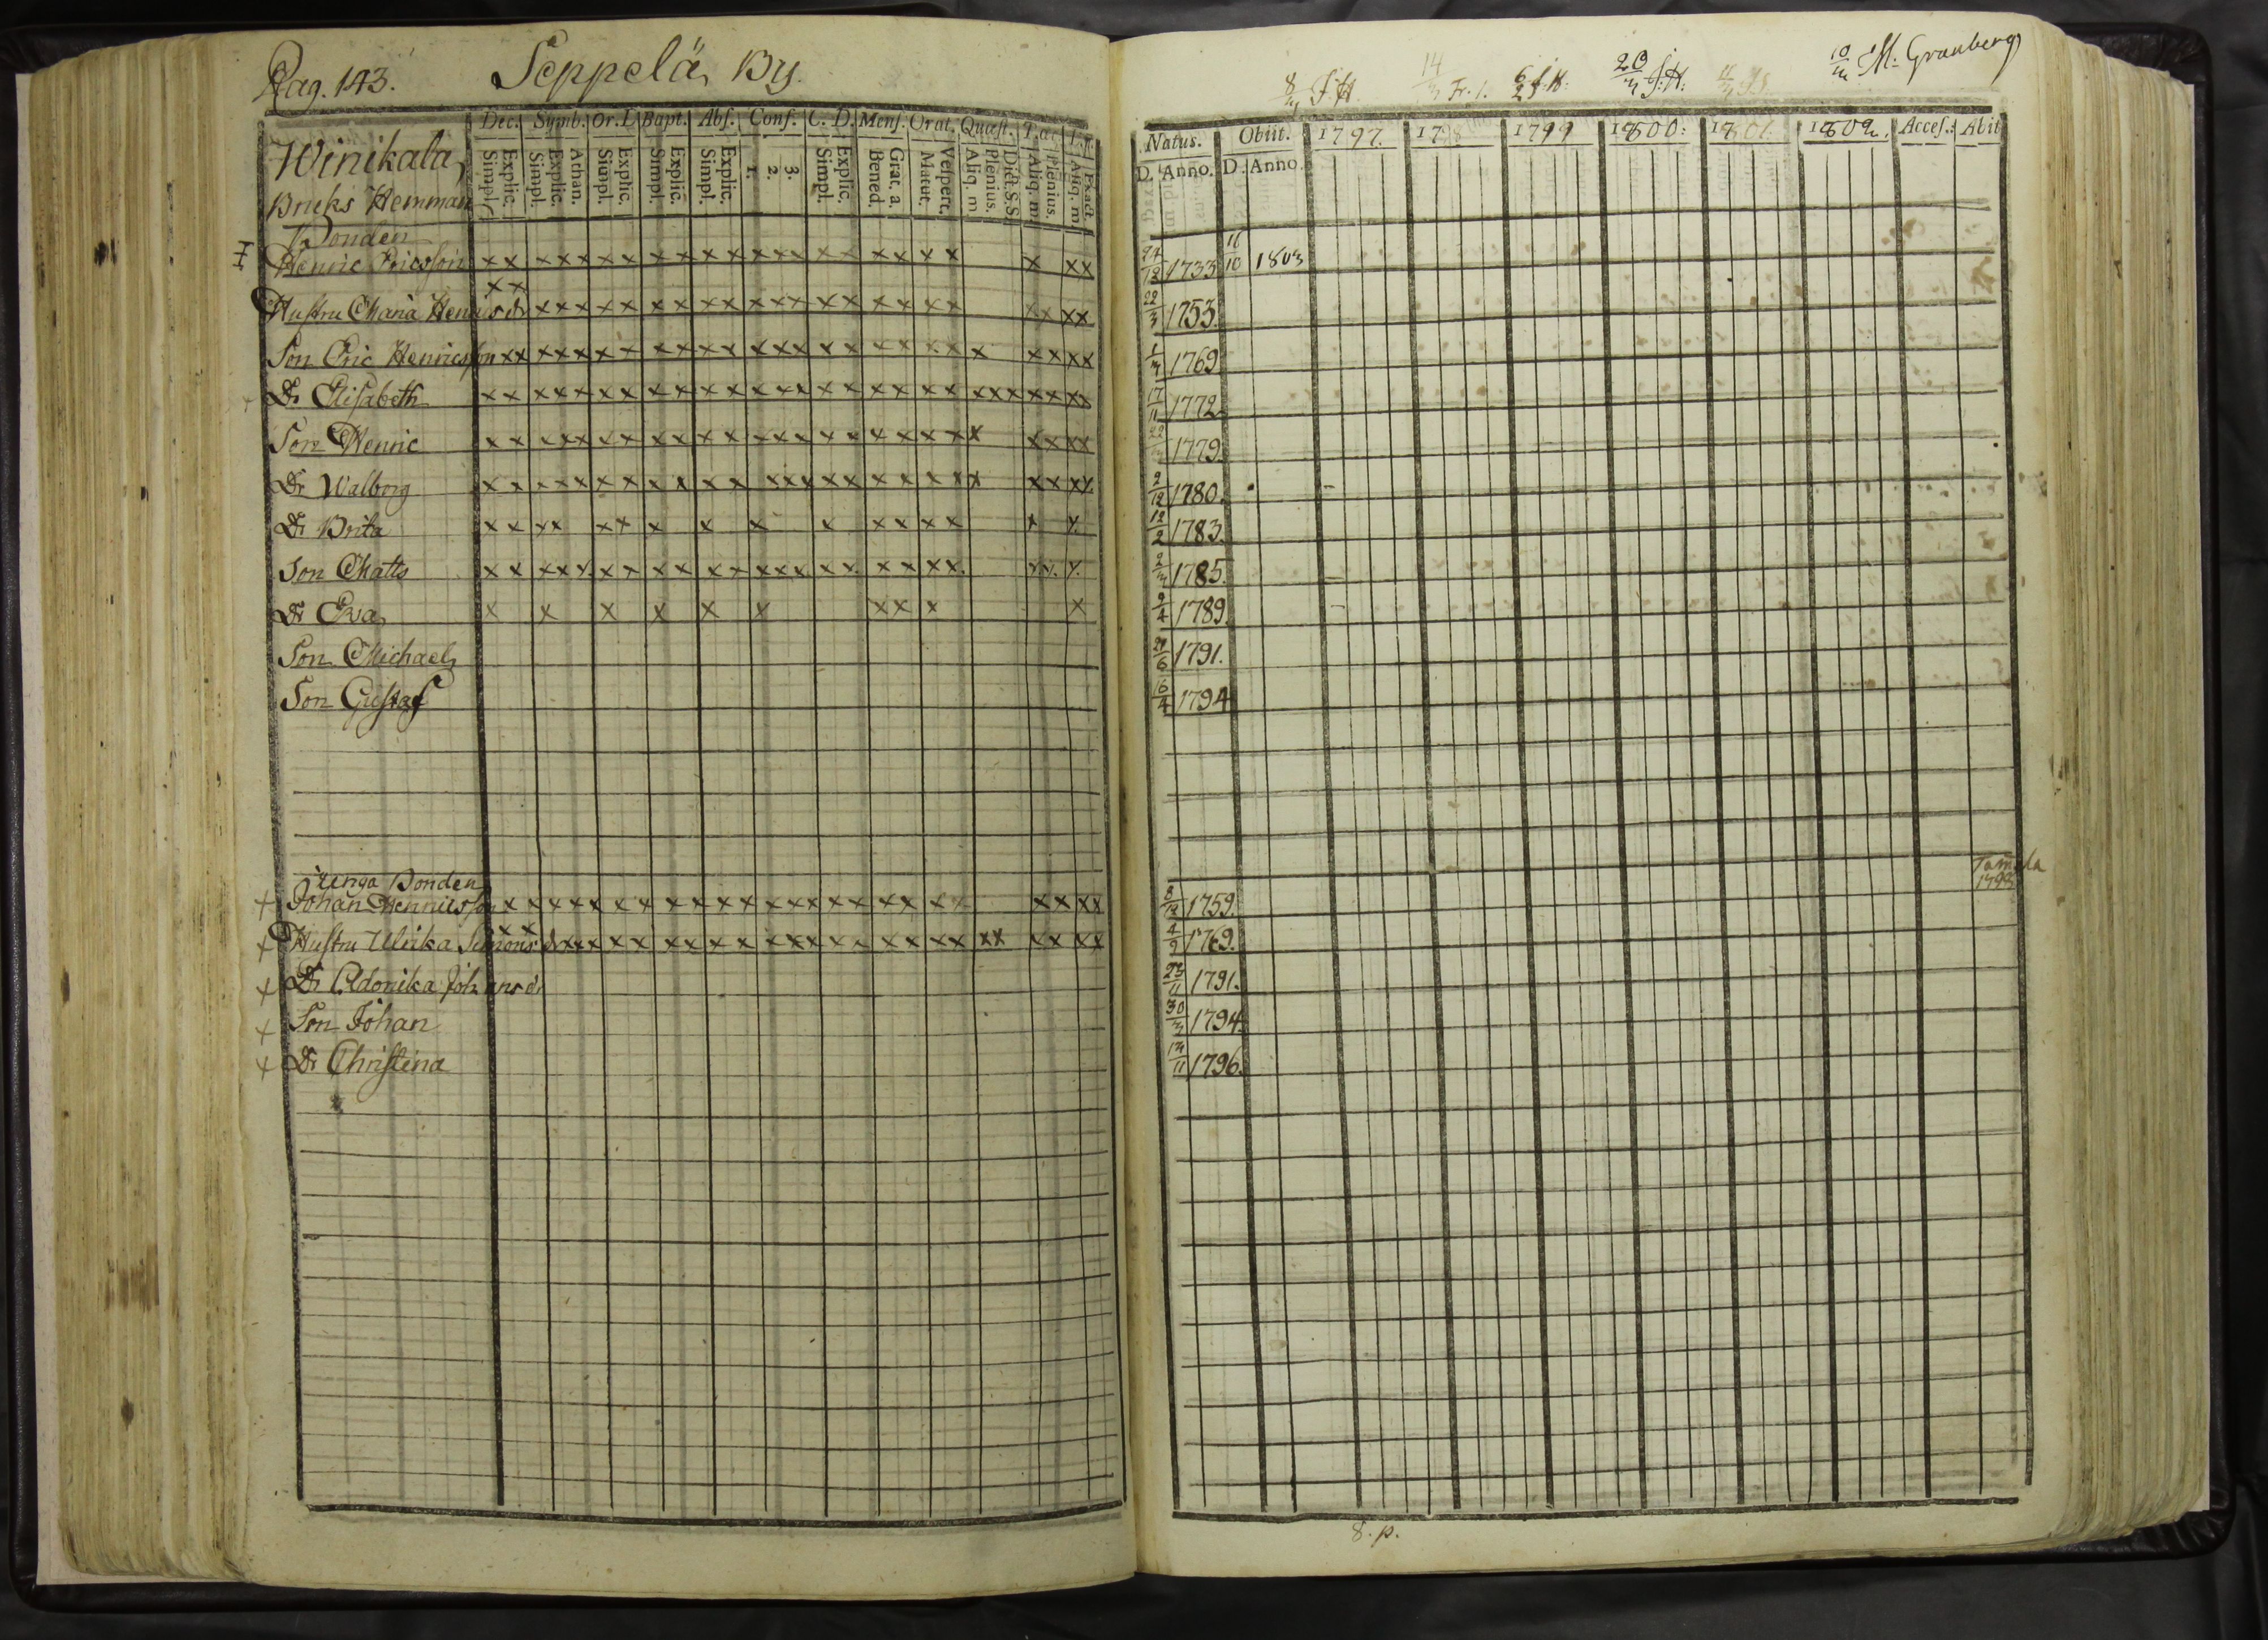 Pag. 143. Seppelä By.
Dec. Symb. Or. D Bapt. Abs. Conf. C. D. Mens. Orat. Quæst.
Explic. Simpl. Athan. Explic. Simpl. Explic. Simpl. Explic. Simpl. Explic. Simpl. 3. 2. 1. Explic. Simpl. Grat. a. Bened. Vespert. Matut. Dict. S.S. Plenius. Aliq. m Plenius. Aliq. m Exact. Aliq. m
Winikala
Bruks Hemman
Bonden
Henric Ericsson xx xxx xx xx xx xxx xx xx xx x xx
Hustru Maria Henricsdr xx xxx xx xx xx xxx xx xx xx xx xx
Son Eric Henricsson xx xxx xx xx xx xxx xx xx xx x xx xx
Dr Elisabeth xx xxx xx xx xx xxx xx xx xx xxx xx xx
Son Henric xx xxx xx xx xx xxx xx xx xx x xx xx
Dr Walborg xx xxx xx xx xx xxx xx xx xx x xx xx
Dr Brita xx xx xx x x x x xx xx x x
Son Matts xx xxx xx xx xx xxx xx xx xx. xx. x.
Dr Eva x x x x x x xx x x
Son Michael
Son Gustaf
unga Bonden
+ Johan Henricsson xx xxx xx xx xx xxx xx xx xx xx xx
+ Hustru Ulrika Simonsdr xx xxx xx xx xx xxx xx xx xx xx xx xx
+ Dr Adonika Johansdr
+ Son Johan
+ Dr Christina
8/3 J.H. 14/3 Fr. 1. 6/2 J.H. 20/3 J.H. 10/3 M. Granberg
Natus. Obiit. 1797. 1798 1799 1800: 1801. 1802. Acces.: Abit
D. Anno. D. Anno.
24/12 1733 16/10 1803
22/3 1753.
1/3 1769
17/11 1772
22 1779.
2/12 1780.
12/2 1783.
2/3 1785.
2/4 1789.
27/6 1791.
16/4 1794
Tamela
1798
8/12 1759.
4/9 1769.
23/11 1791.
30/3 1794.
13/11 1796.
8. p.